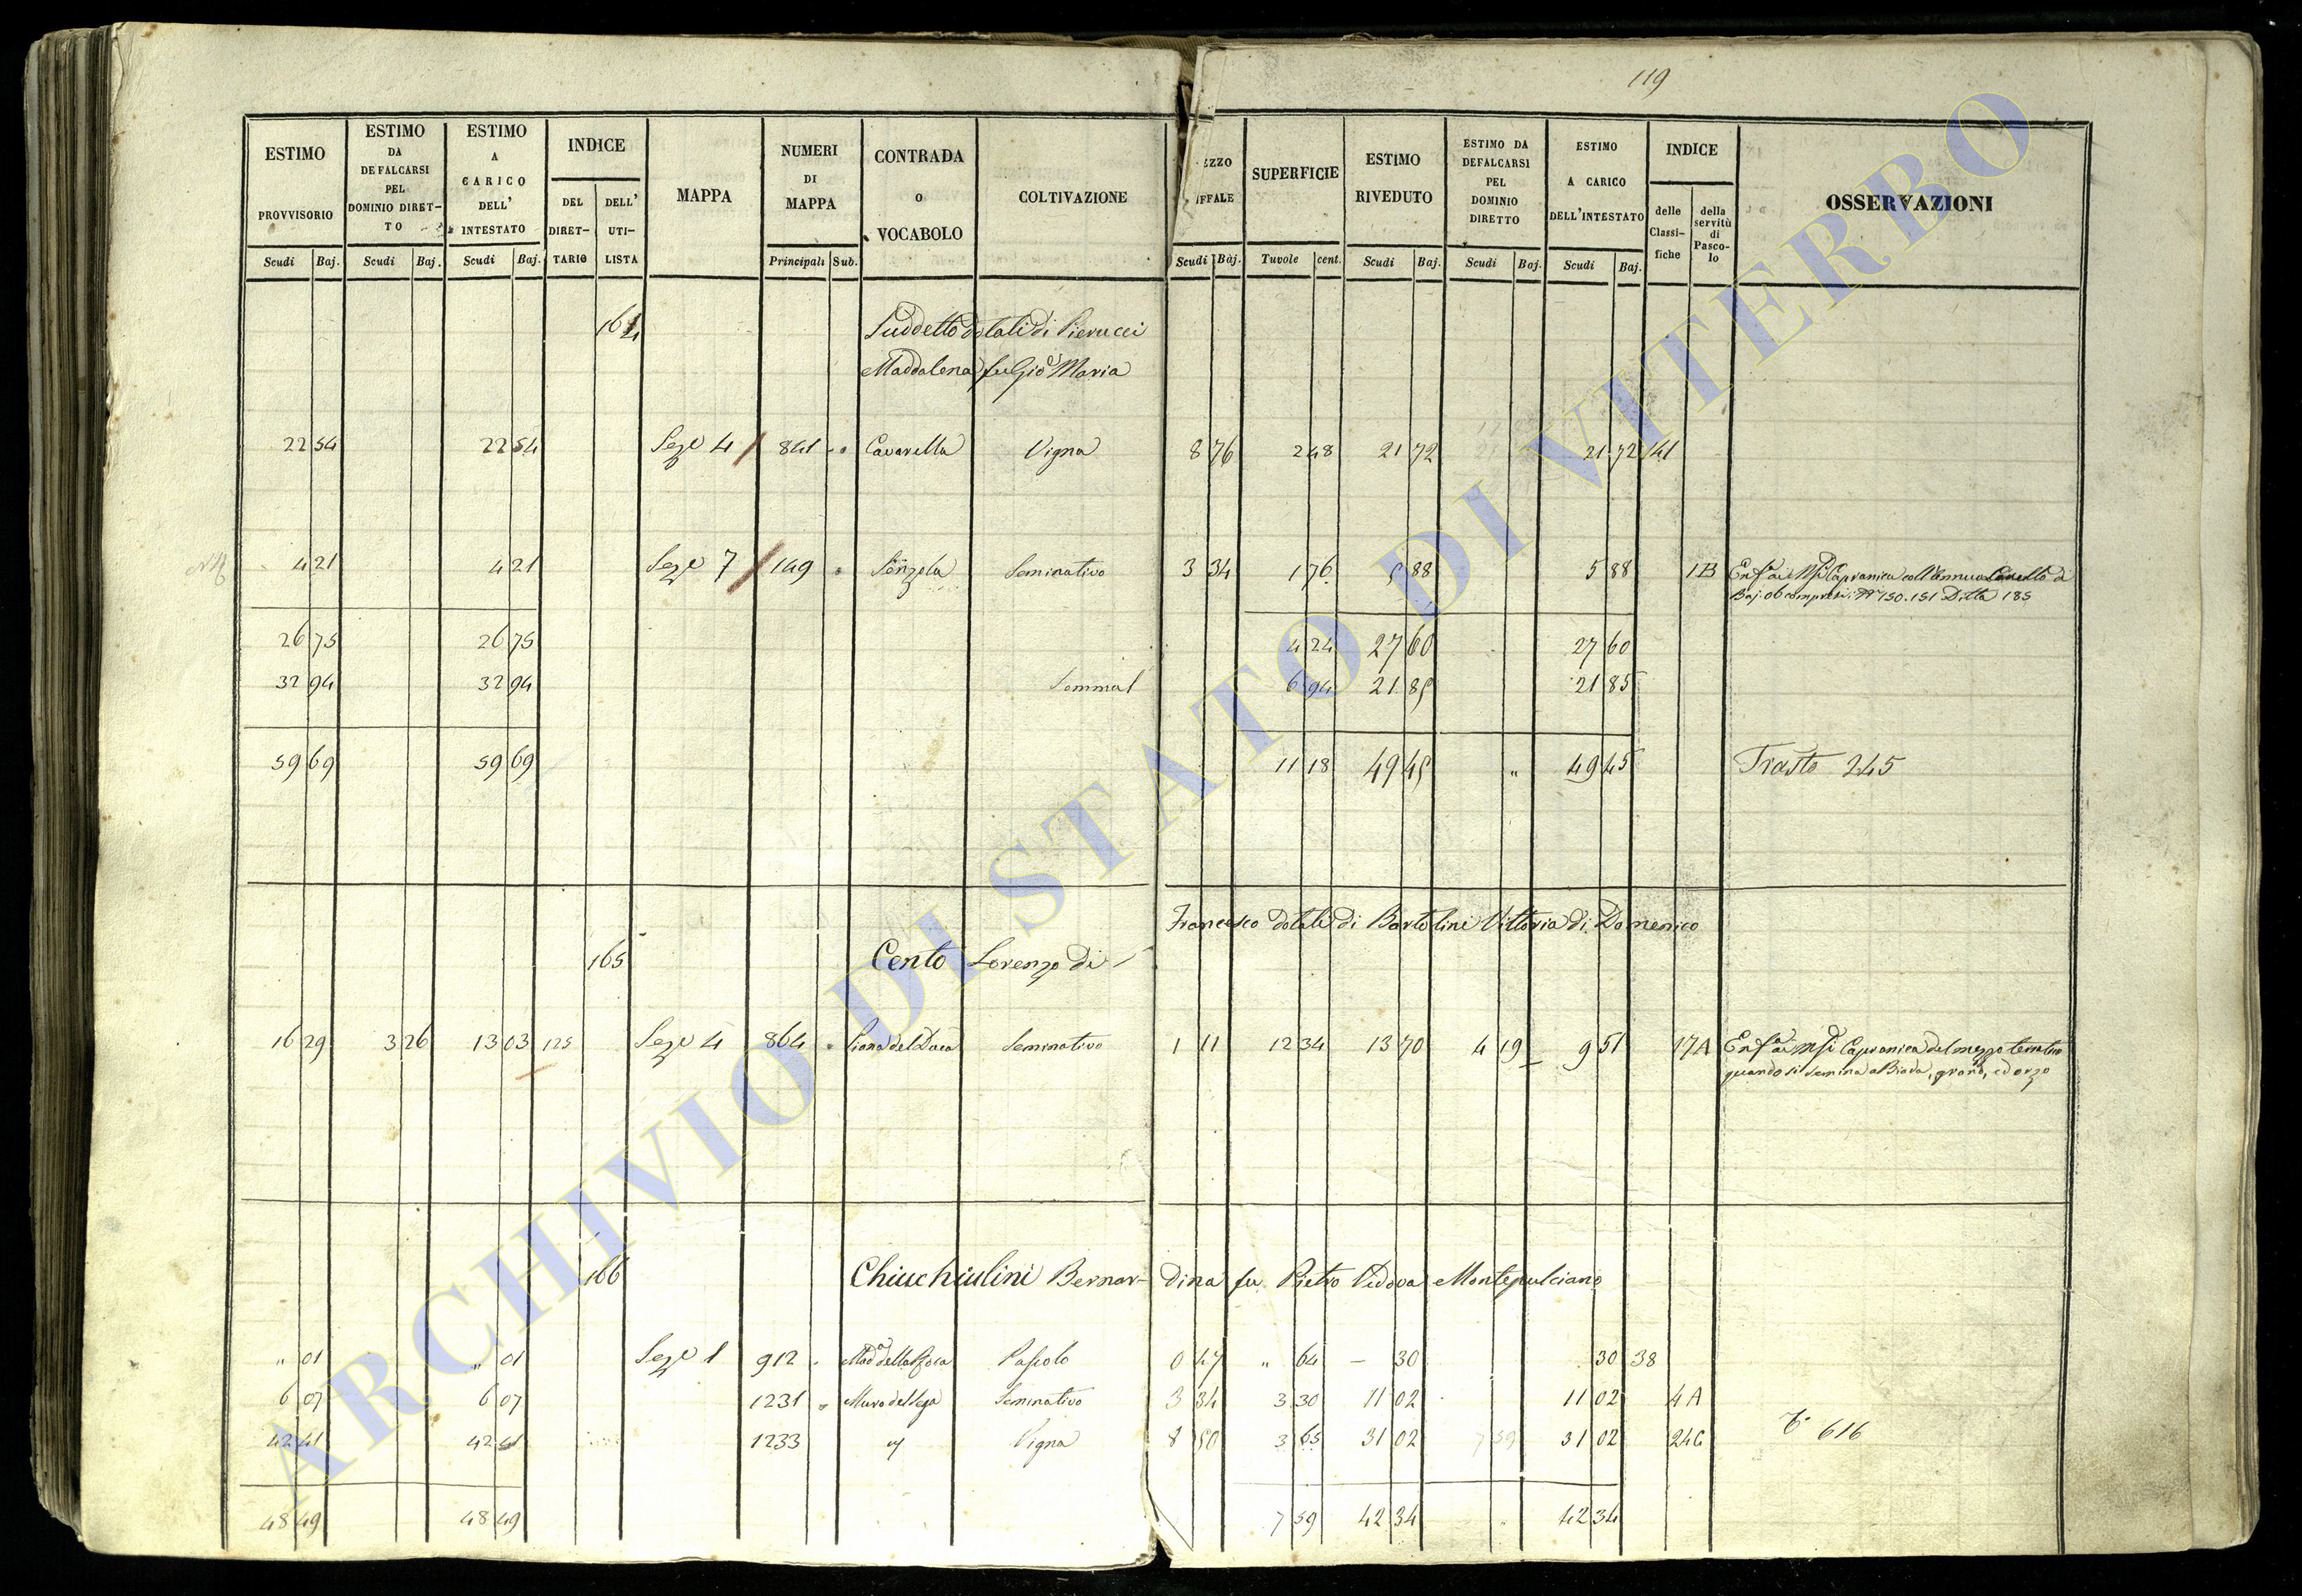 119
ESTIMO PROVVISORIO Scudi Baj.
ESTIMO DA DEFALCARSI PEL DOMINIO DIRET-TO Scudi Baj.
ESTIMO A CARICO DELL' INTESTATO Scudi Baj.
INDICE DEL DIRET-TARIO DELL' UTI-LISTA
MAPPA
NUMERI DI MAPPA Principali Sub.
CONTRADA o VOCABOLO
COLTIVAZIONE
EZZO IFFALE Scudi Baj.
SUPERFICIE Tavole cent.
ESTIMO RIVEDUTO Scudi Baj.
ESTIMO DA DEFALCARSI PEL DOMINIO DIRETTO Scudi Baj.
ESTIMO A CARICO DELL'INTESTATO Scudi Baj.
INDICE delle Classi-fiche della servitù di Pasco-lo
OSSERVAZIONI
164 Suddetto dotali di Pierucci
Maddalena fu Gio Maria
22 54 22 54 Seze 4 841 Cavarella Vigna 8 76 2 48 21 72 21 72 141
4 21 4 21 Seze 7 149 Senzola Seminativo 3 34 1 76 5 88 5 88 1B
Baj. 06 compresi i 150.151 Ditta 185
26 75 26 75 4 24 27 60 27 60
32 94 32 94 Semmal 6 94 21 85 21 85
59 69 59 69 11 18 49 45 " 49 45 Trasto 245
Francesco dotali di Bartolini Vittoria di Domenico
165 Cento Lorenzo di
16 29 3 26 13 03 125 Seze 4 864 Piana del Duca Seminativo 1 11 12 34 13 70 4 19 9 51 17A
quando si semina a Biada, grano, ed orzo
166 Chiuchiulini Bernar-dina fu Pietro Vedova Montepulciano
" 01 " 01 Seze 1 912 Pascolo 0 47 " 64 — 30 30 38
6 07 6 07 1231 Muro del Sega Seminativo 3 34 3 30 11 02 11 02 4A
42 41 42 41 1233 " Vigna 8 50 3 65 31 02 7 59 31 02 24C
616
48 49 48 49 7 59 42 34 42 34
ARCHIVIO DI STATO DI VITERBO